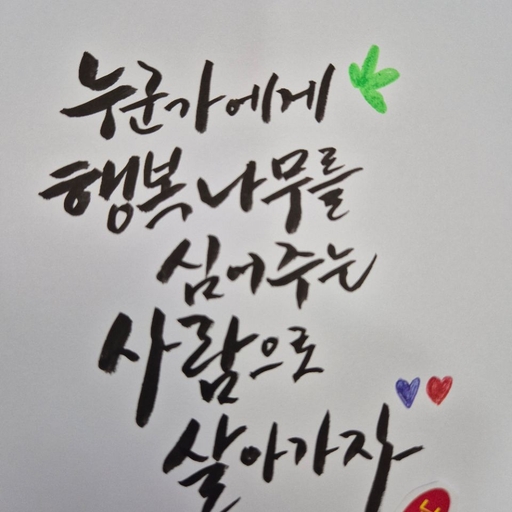 누군가에게
행복나무를
심어주는
사람으로
살아가자